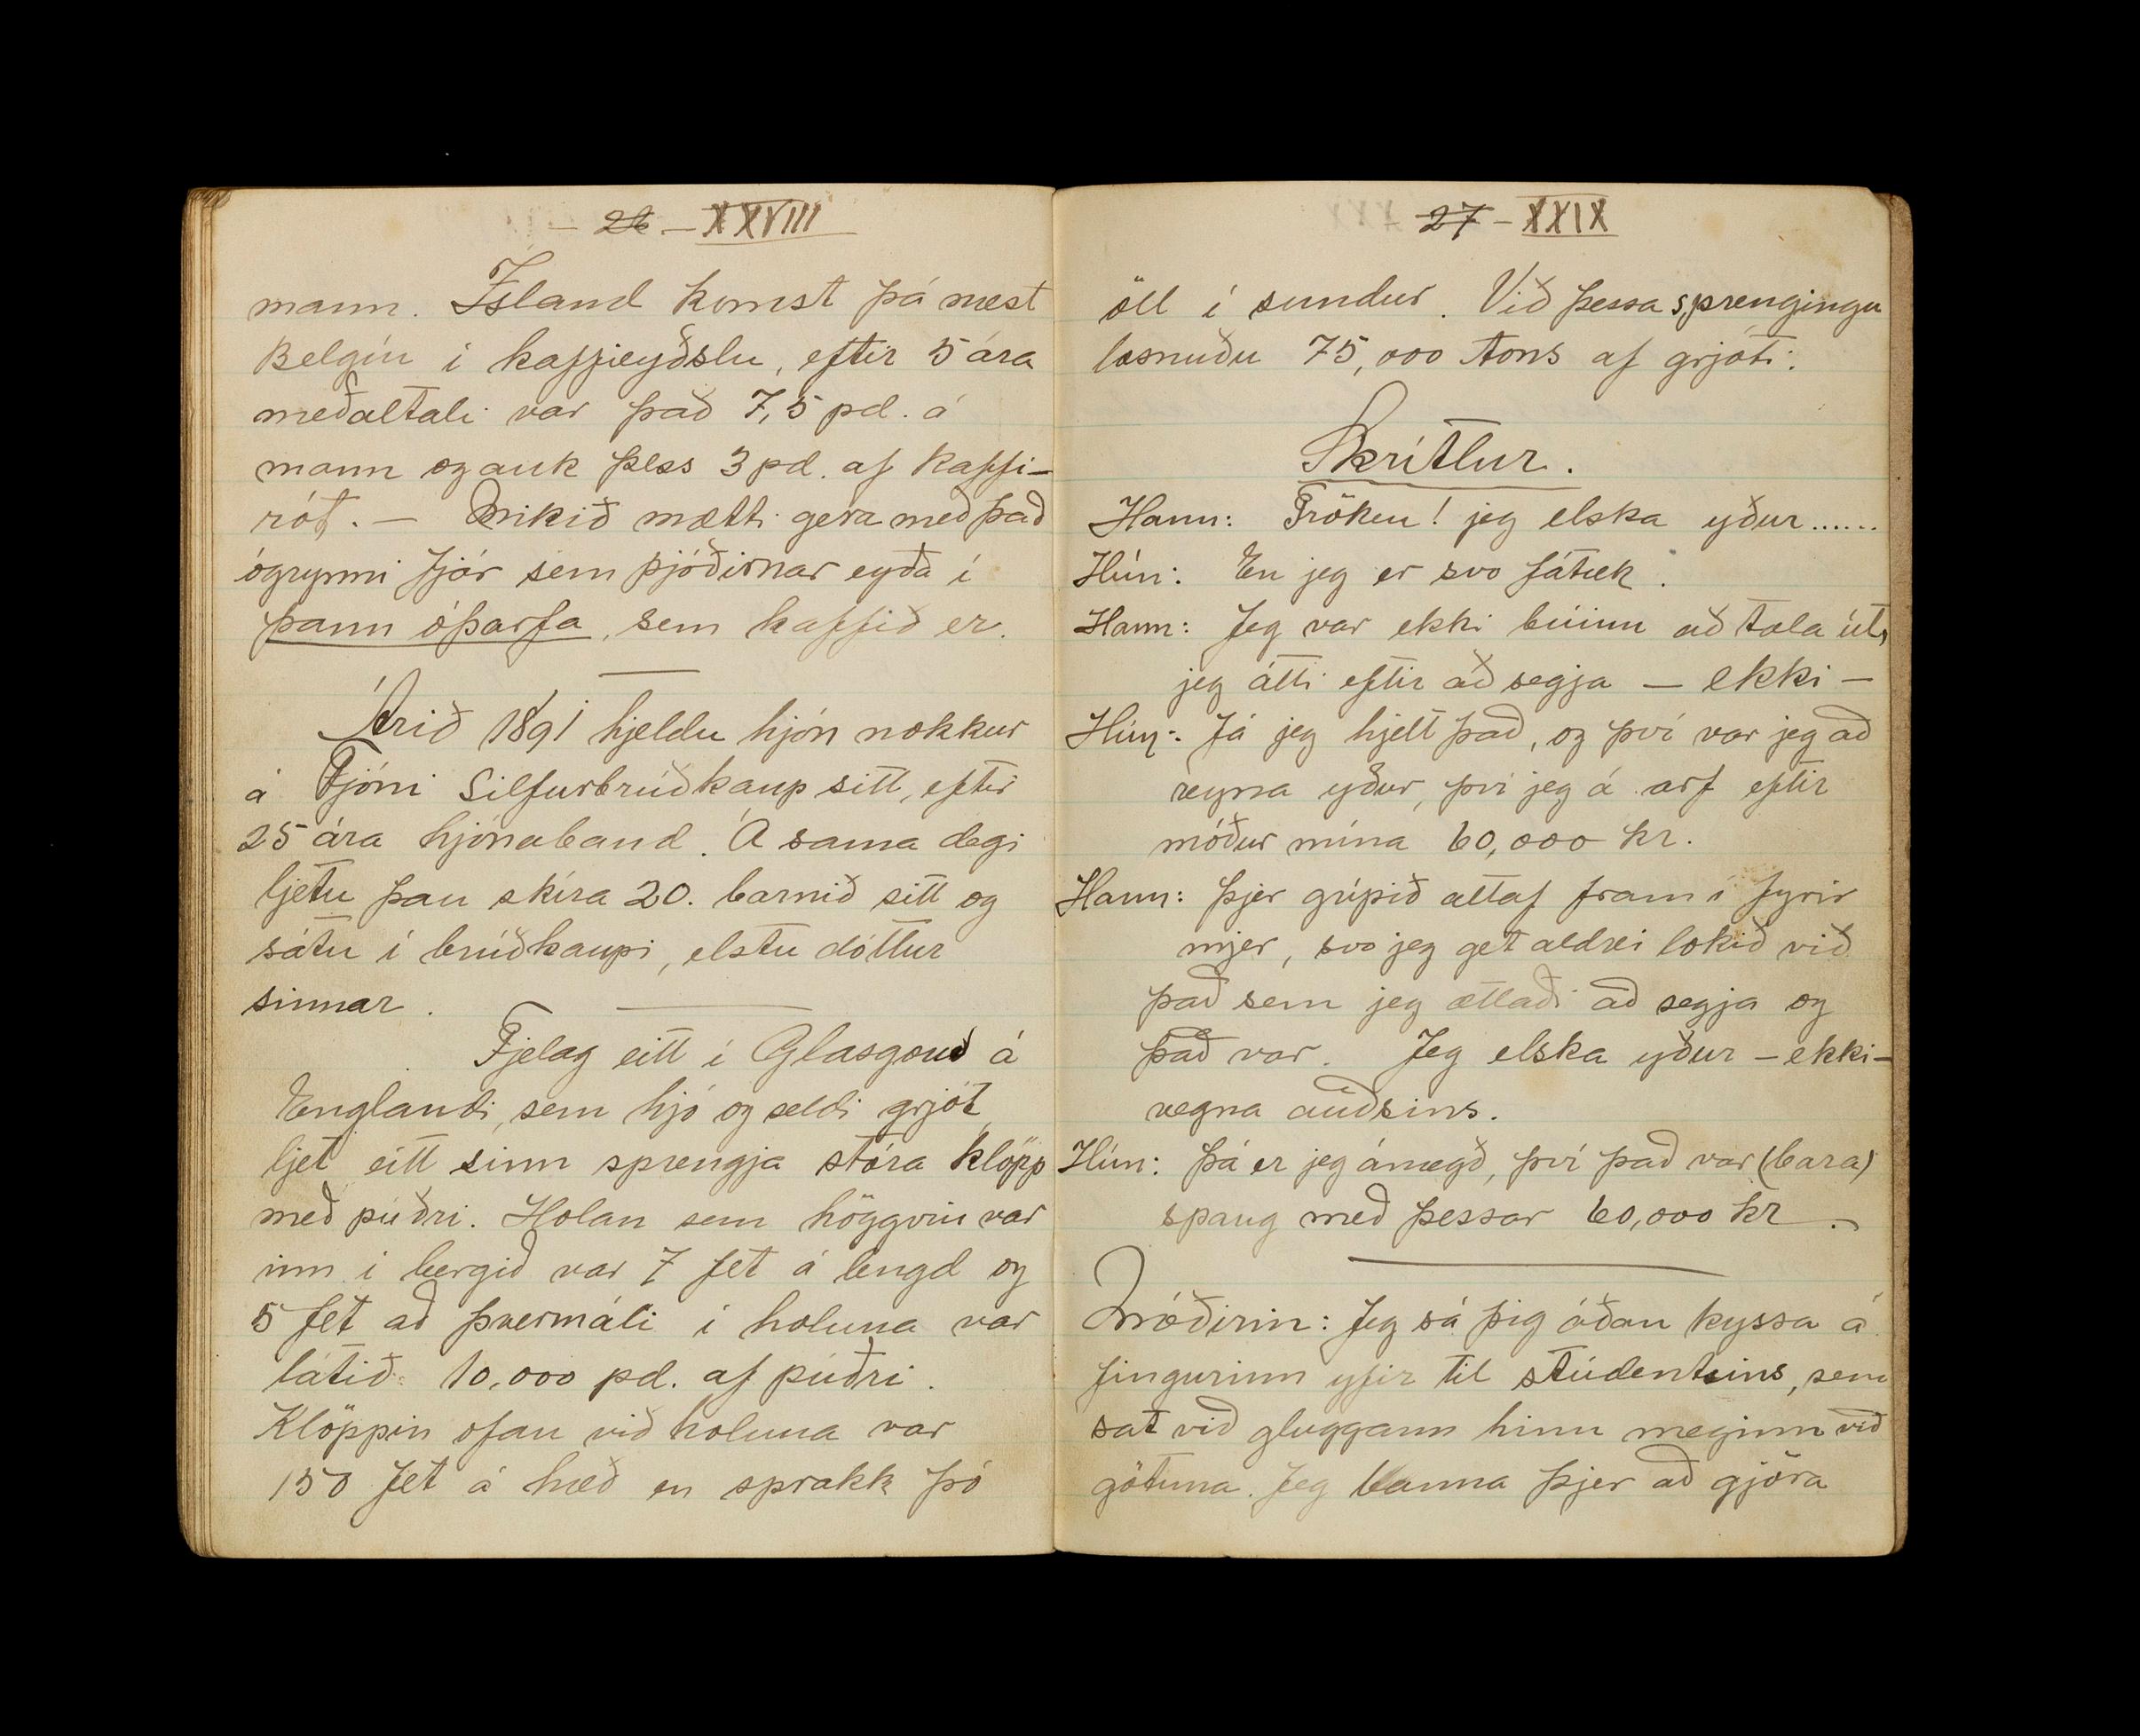 - 26 - XXVIII
mann. Ísland komst þá næst
Belgíu i kaffieyðslu, eftir 5 ára
meðaltali var það 7,5 pd. á
mann og auk þess 3 pd. af kaffi-
rót. — Mikið mætti gera með það
ógrynni fjár sem þjóðirnar eyða í
þann óþarfa, sem kaffið er.
Árið 1891 hjeldu hjón nokkur
á Fjóni Silfurbrúðkaup sitt, eftir
25 ára hjónaband. Á sama degi
ljetu þau skíra 20. barnið sitt og
sátu í brúðkaupi, elstu dóttur
sinnar.
Fjelag eitt í Glasgow á
Englandi, sem hjó og seldi grjót,
ljet eitt sinn sprengja stóra klöpp
með púðri. Holan sem höggvin var
inn i bergið var 7 fet á lengd og
5 fet að þvermáli í holuna var
látið 10,000 pd. af púðri.
Klöppin ofan við holuna var
150 fet á hæð en sprakk þó
27 - XXIX
öll í sundur. Við þessa sprengingu
losnuðu 75,000 tons af grjóti:
Skrítlur.
Hann: Fröken! jeg elska yður......
Hún: En jeg er svo fátæk.
Hann: Jeg var ekki búinn að tala út,
jeg átti eftir að segja — ekki —
Hún: Já jeg hjelt það, og því var jeg að
reyna yður, því jeg á arf eftir
móður mína 60,000 kr.
Hann: Þjer grípið altaf fram í fyrir
mjer, svo jeg get aldrei lokið við
það sem jeg ætlaði að segja og
það var. Jeg elska yður - ekki -
vegna auðsins.
Hún: Þá er jeg ánægð, því það var (bara)
spaug með þessar 60,000 kr.
Móðirin: Jeg sá þig áðan kyssa á
fingurinn yfir til stúdentsins, sem
sat við gluggann hinu meginn við
götuna. Jeg banna þjer að gjöra